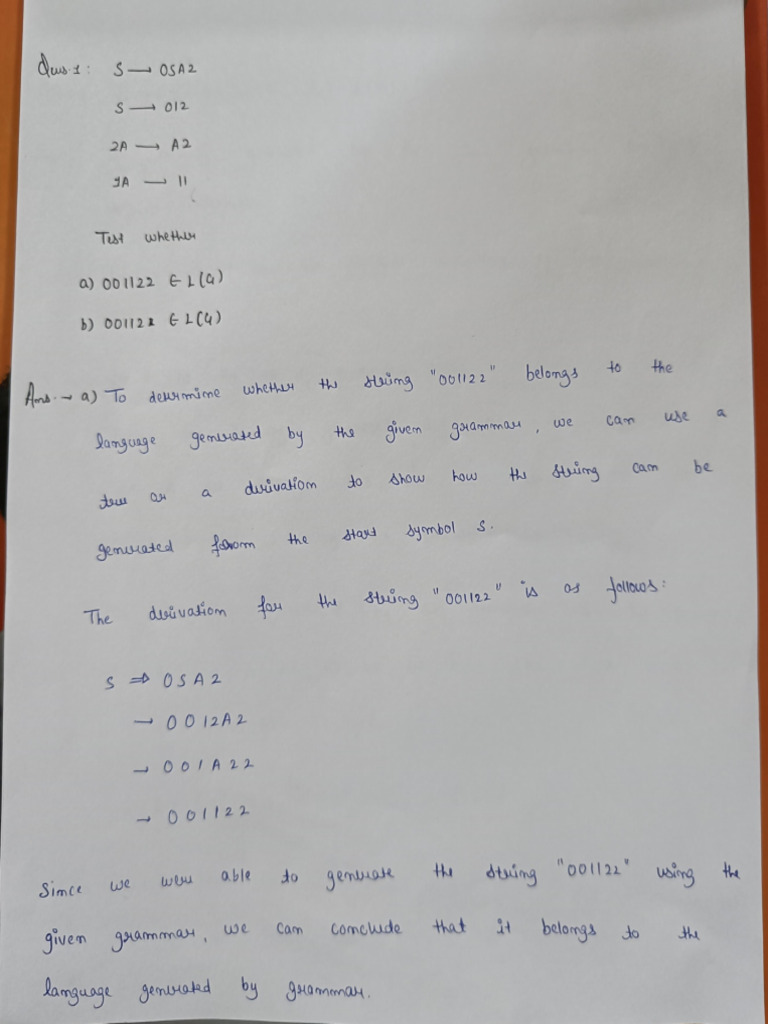 Ques.1: S → 0SA2
S → 012
2A → A2
1A → 11
Test whether
a) 001122 ∈ L(G)
b) 001122 ∈ L(G)
Ans. → a) To determine whether the string "001122" belongs to the
language generated by the given grammar, we can use a
tree or a derivation to show how the string can be
generated from the start symbol S.
The derivation for the string "001122" is as follows:
S ⇒ 0SA2
→ 0012A2
→ 001A22
→ 001122
Since we were able to generate the string "001122" using the
given grammar, we can conclude that it belongs to the
language generated by grammar.